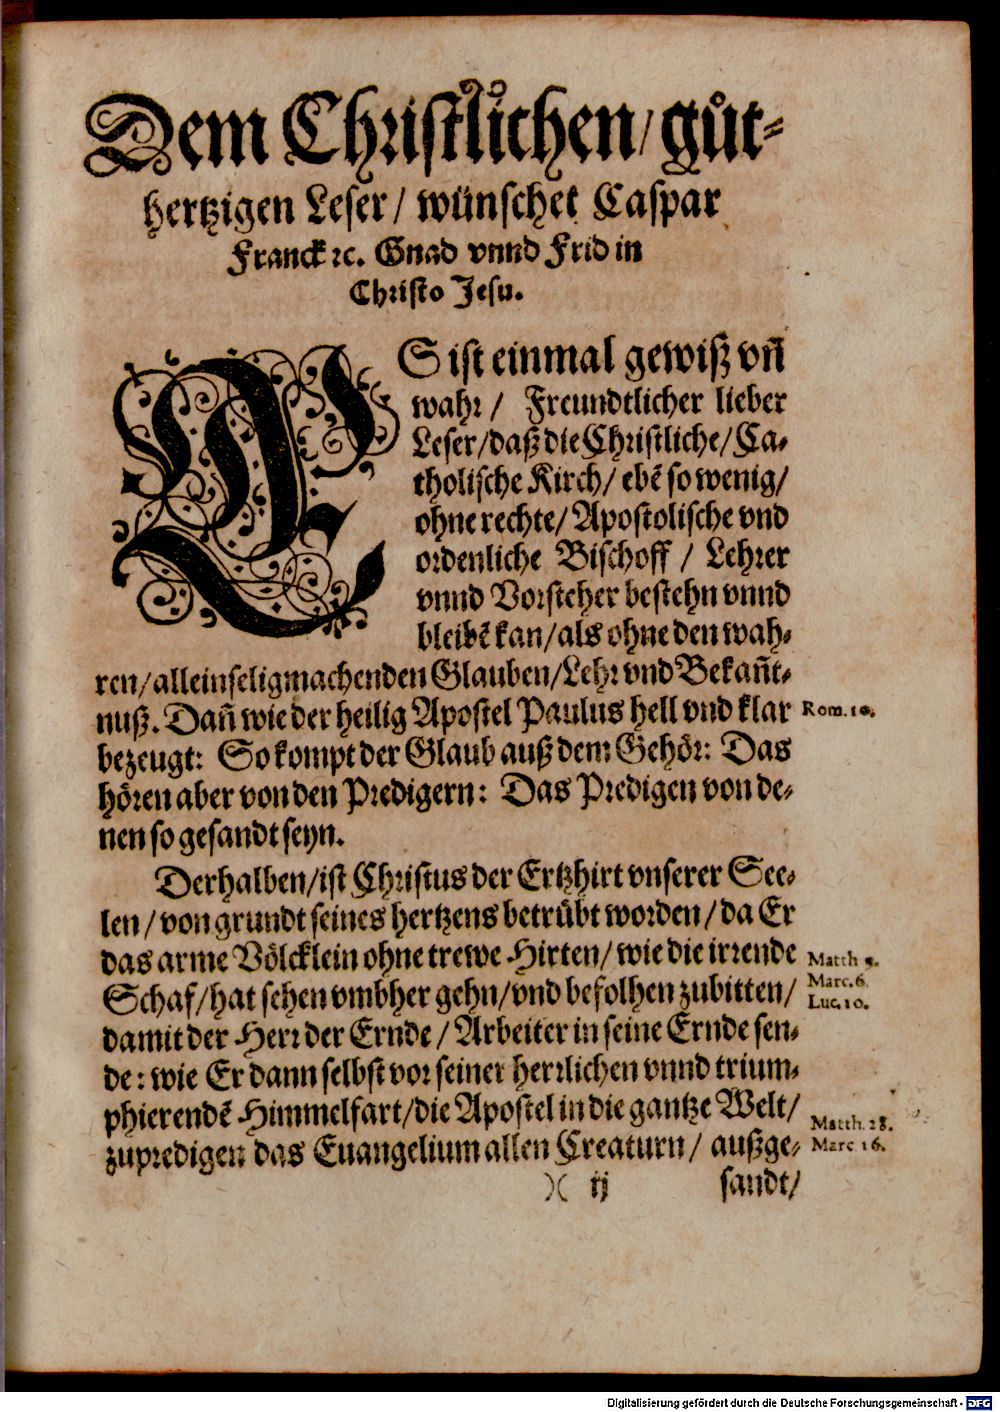 Dem Christlichen/ gůt-
hertzigen Leser/ wünschet Caspar
Franck ꝛc. Gnad vnnd Frid in
Christo Jesu.
ES ist einmal gewiß vñ
wahr/ Freundtlicher lieber
Leser/ daß die Christliche/ Ca-
tholische Kirch/ ebẽ so wenig/
ohne rechte/ Apostolische vnd
ordenliche Bischoff/ Lehrer
vnnd Vorsteher bestehn vnnd
bleibẽ kan/ als ohne den wah-
ren/ alleinseligmachenden Glauben/ Lehr vnd Bekañt-
nuß. Dañ wie der heilig Apostel Paulus hell vnd klar
Rom. 10.
bezeugt: So kompt der Glaub auß dem Gehör: Das
hören aber von den Predigern: Das Predigen von de-
nen so gesandt seyn.
Derhalben/ ist Christus der Ertzhirt vnserer See-
len/ von grundt seines hertzens betrübt worden/ da Er
das arme Völcklein ohne trewe Hirten/ wie die irrende
Matth 9.
Schaf/ hat sehen vmbher gehn/ vnd befolhen zubitten/
Marc. 6.
Luc. 10.
damit der Herr der Ernde/ Arbeiter in seine Ernde sen-
de: wie Er dann selbst vor seiner herrlichen vnnd trium-
phierendẽ Himmelfart/ die Apostel in die gantze Welt/
Matth. 28.
zupredigen das Euangelium allen Creaturn/ außge-
Marc 16.
)( ij sandt/
Digitalisierung gefördert durch die Deutsche Forschungsgemeinschaft - DFG